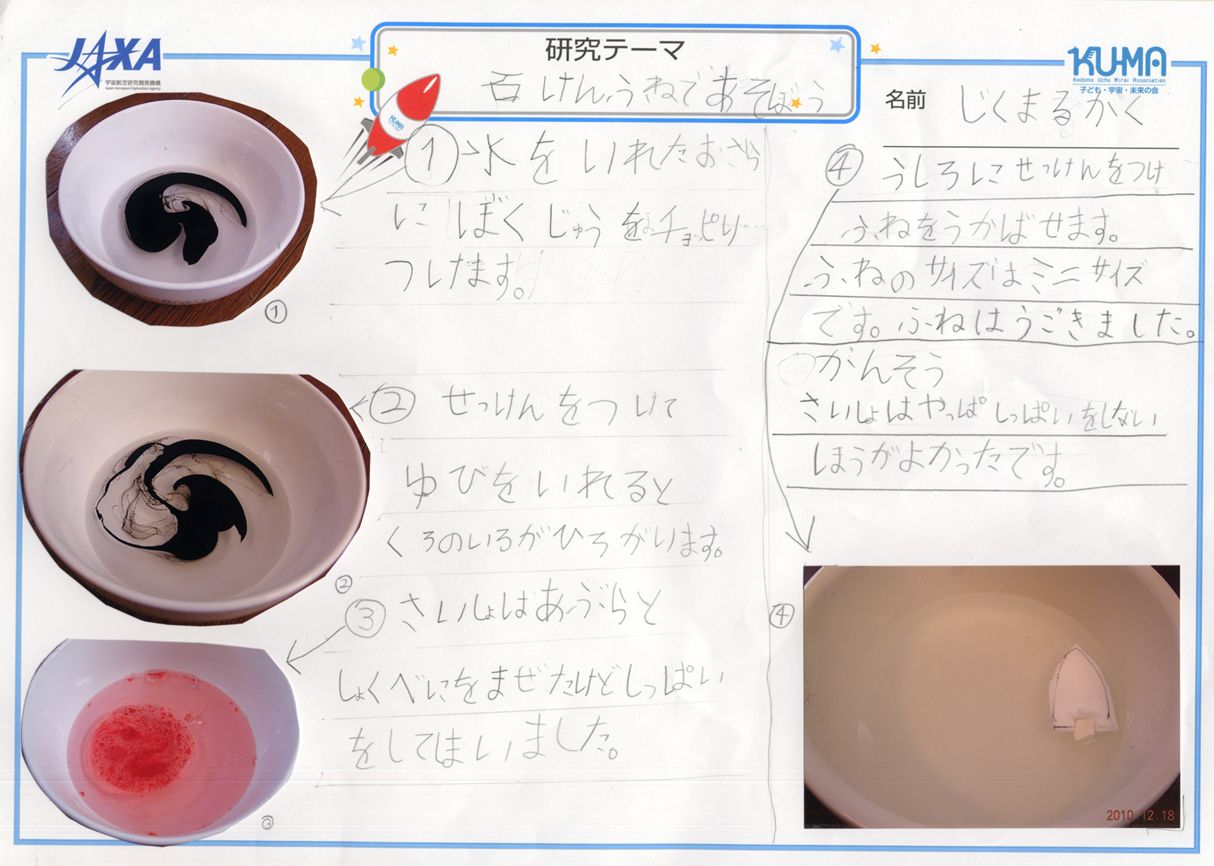 JAXA
宇宙航空研究開発機構
Japan Aerospace Exploration Agency
研究テーマ
石けんふねであそぼう
KUMA
KU-MA
Kodomo Uchu Mirai Association
子ども・宇宙・未来の会
名前 じくまるがく
①水をいれたおさら
にぼくじゅうをチョッピリ…
つけます。
①
②せっけんをつけて
ゆびをいれると
くろのいろがひろがります。
②
③さいしょはあぶらと
しょくべにをまぜたけどしっぱい
をしてしまいました。
③
④うしろにせっけんをつけ
ふねをうかばせます。
ふねのサイズはミニサイズ
です。ふねはうごきました。
かんそう
さいしょはやっぱしっぱいをしない
ほうがよかったです。
④
2010.12.18